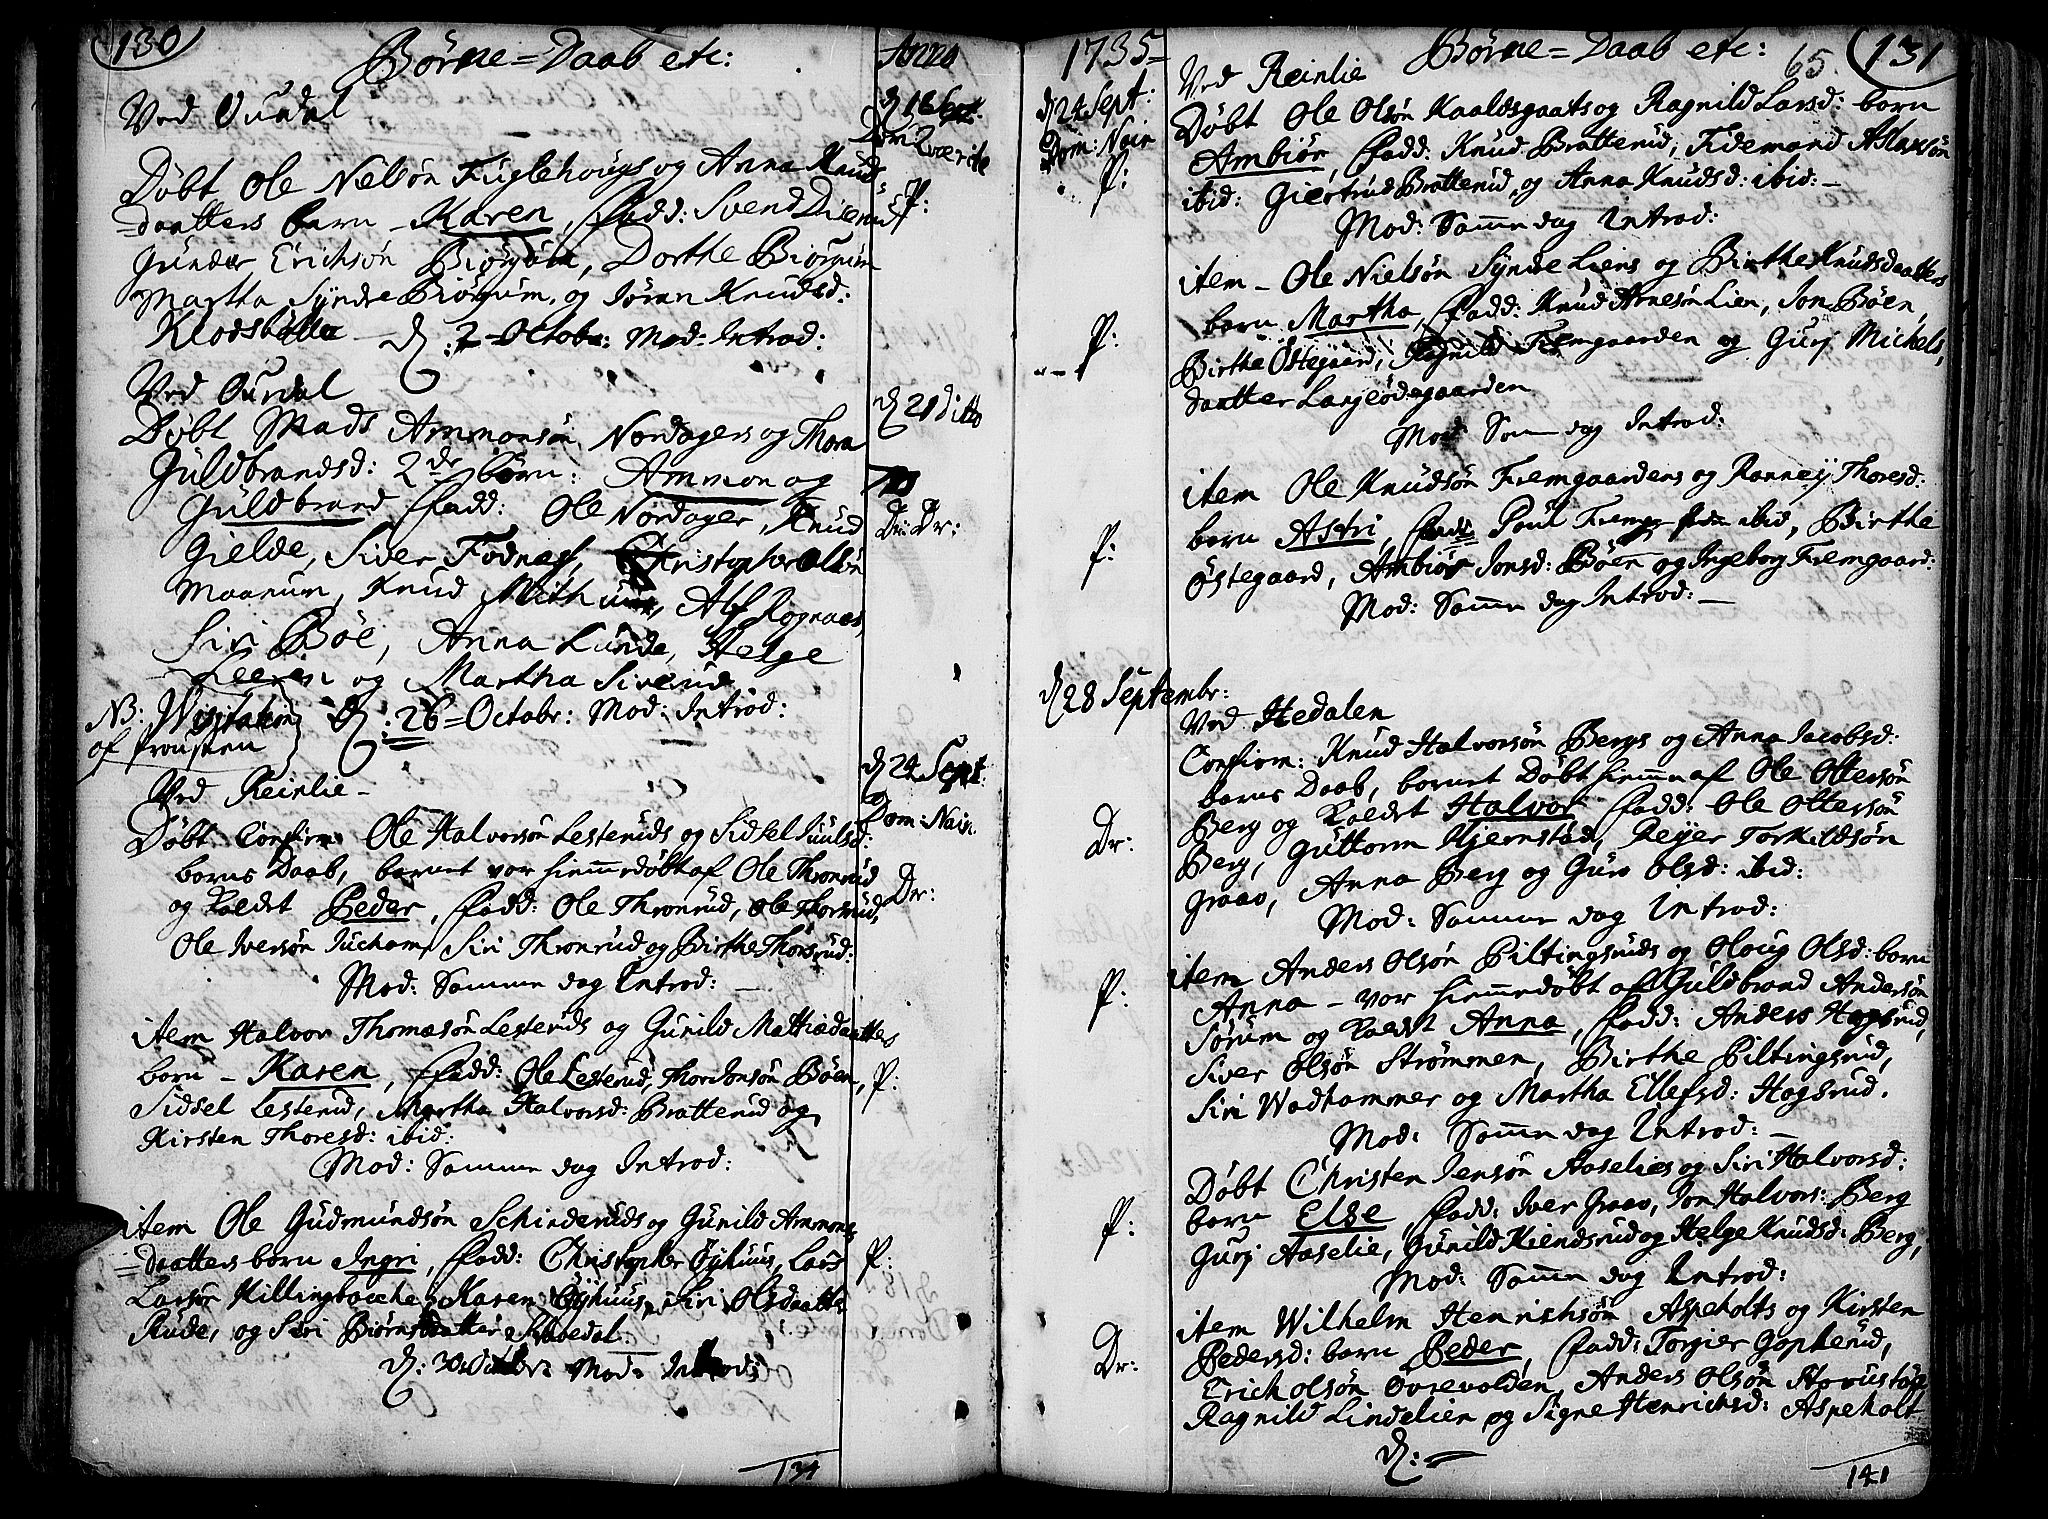 130
Børne=Daab etc:
Anno
Ved Ourdal
d 18 Sept.
Dom 2
Døbt Ole Nelsøn Fuglehougs og Anna Knuds
=daatters barn - Karen, fadd: Svend
P:
Gunder Erichsøn Biørgum, Dorthe Biørgum
Martha Syndre Biørgum, og Jøran Knudsd:
Klodsbølle - d: 2 Octobr: Mod: Introd:
Ved Ourdal
d 21 Ditto
Døbt Mads Ammonsøn Nordagers og Thora
Guldbrandsd: 2de børn: Ammon og
Guldbrand fadd: Ole Nordager, Knud
Dr: Dr:
Gielde, Siver Fodnes, Christopher Olsøn
Maanum, Knud Mithuun, Alf Rognaas,
Siri Bøe, Anna Lunde, Helge
og Martha Siverud
NB: Visitation d: 26 = Octobr: Mod: Introd:
af Prousten
Ved Reinlie -
d 24 Sept.
Dom: Nain.
Døbt Confirm: Ole Halvorsøn Lesteruds og Sidsel Juulsd:
barns Daab, barnet var hiemmedøbt af Ole Thronrud
og Kaldet Peder, fadd: Ole Thronrud, Ole Thorsrud,
Dr:
Ole Iversøn Jucham, Siri Thronrud og Birthe Thorsrud:
Mod: Samme dag Introd: -
item Halvor Thomæsøn Lesteruds og Gunild Mattiædaatters
barn - Karen, fadd: Ole Lesterud, Thor Jonsøn Bøen,
P:
Sidsel Lesterud, Martha Halvorsd: Bratterud og
Kirsten Thoresd: ibid:
Mod: Samme dag Introd:
item Ole Gudmundsøn Schinderuds og Gunild Ammons
=daatters barn Ingri, fadd: Christopher Øyhuus, Lars
P:
Larsøn Killingbacche, Karen Øyhuus, Siri Olsdaatter
Rude, og Siri Biørnsdaatter
d: 30 Octobr: Mod: Introd:
134
1735-
Børne=Daab etc:
65
131
Ved Reinlie
d 24 Sept:
Dom: Nain
Døbt Ole Olsøn Kaaldsgaats og Ragnild Larsd: barn
Ambiør, fadd: Knud Bratterud, Tidemand Aslaxsøn
P:
ibid: Giertrud Bratterud, og Anna Knudsd: ibid: -
Mod: Samme dag Introd:
item - Ole Nielsøn Syndre Liens og Birthe Knudsdaatters
barn Martha, fadd: Knud Arnesøn Lien, Jon Bøen,
P:
Birthe Østegaard, Ragnild Fremgaarden og Gurj Michels,
daatter Langeødegaarden
Mod: Sam dag Introd:
item Ole Knudsøn Fremgaardens og Ranney Thoresd:
barn Astri, fadd: Poul ibid, Birthe
P:
Østegaard, Ambiør Jonsd: Bøen og Ingeborg Fremgaard:
Mod: Samme dag Introd: -
d 28 Septembr:
Ved Hedalen
Confirm: Knud Halvorsøn Bergs og Anna Jacobsd:
barns Daab, barnet Døbt hiemme af Ole Ottersøn
Berg og Kaldet Halvor fadd: Ole Ottersøn
Dr:
Berg, Guttorm Hjernstad, Reyer Torkildsøn
Graav, Anna Berg og Guro Olsd: ibid:
Mod: Samme dag Introd:
item Anders Olsøn Piltingsruds og Oloug Olsd: barn
P:
Anna - var hiemmedøbt af Guldbrand Andersøn
Sørum og Kaldet Anna, fadd: Anders Hagsrud,
Siver Olsøn Strømmen, Birthe Piltingsrud,
Siri Wadhammer og Martha Ellefsd: Hagsrud.
Mod: Samme dag Introd: -
Døbt Christen Jensøn Aaselies og Siri Halvorsd:
P:
barn Else, fadd: Iver Graav, Jon Halvors: Berg
Gurj Aaselie, Gunild Kiendsrud og Helge Knudsd: Berg,
Mod: Samme dag Introd:
item Wilhelm Henrichsøn Aspeholts og Kirsten
Dr:
Pedersd: barn Peder, fadd: Torgier Gopherud,
Erich Olsøn Øvrevolden, Anders Olsøn
Ragnild Lindelien og Signe Henrichsd: Aspeholt
d: -
141